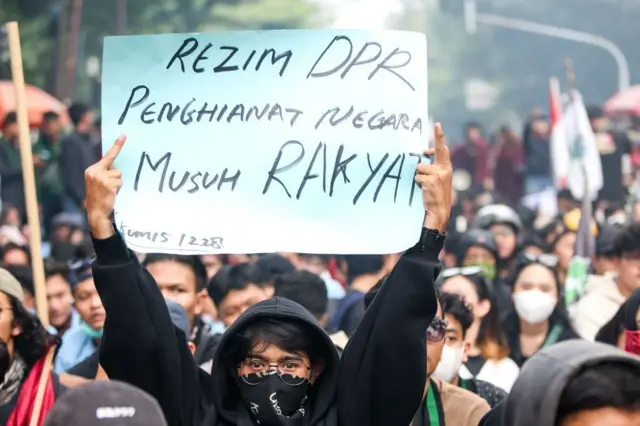 REZIM DPR
PENGHIANAT NEGARA
MUSUH RAKYAT
KUMIS / 1228